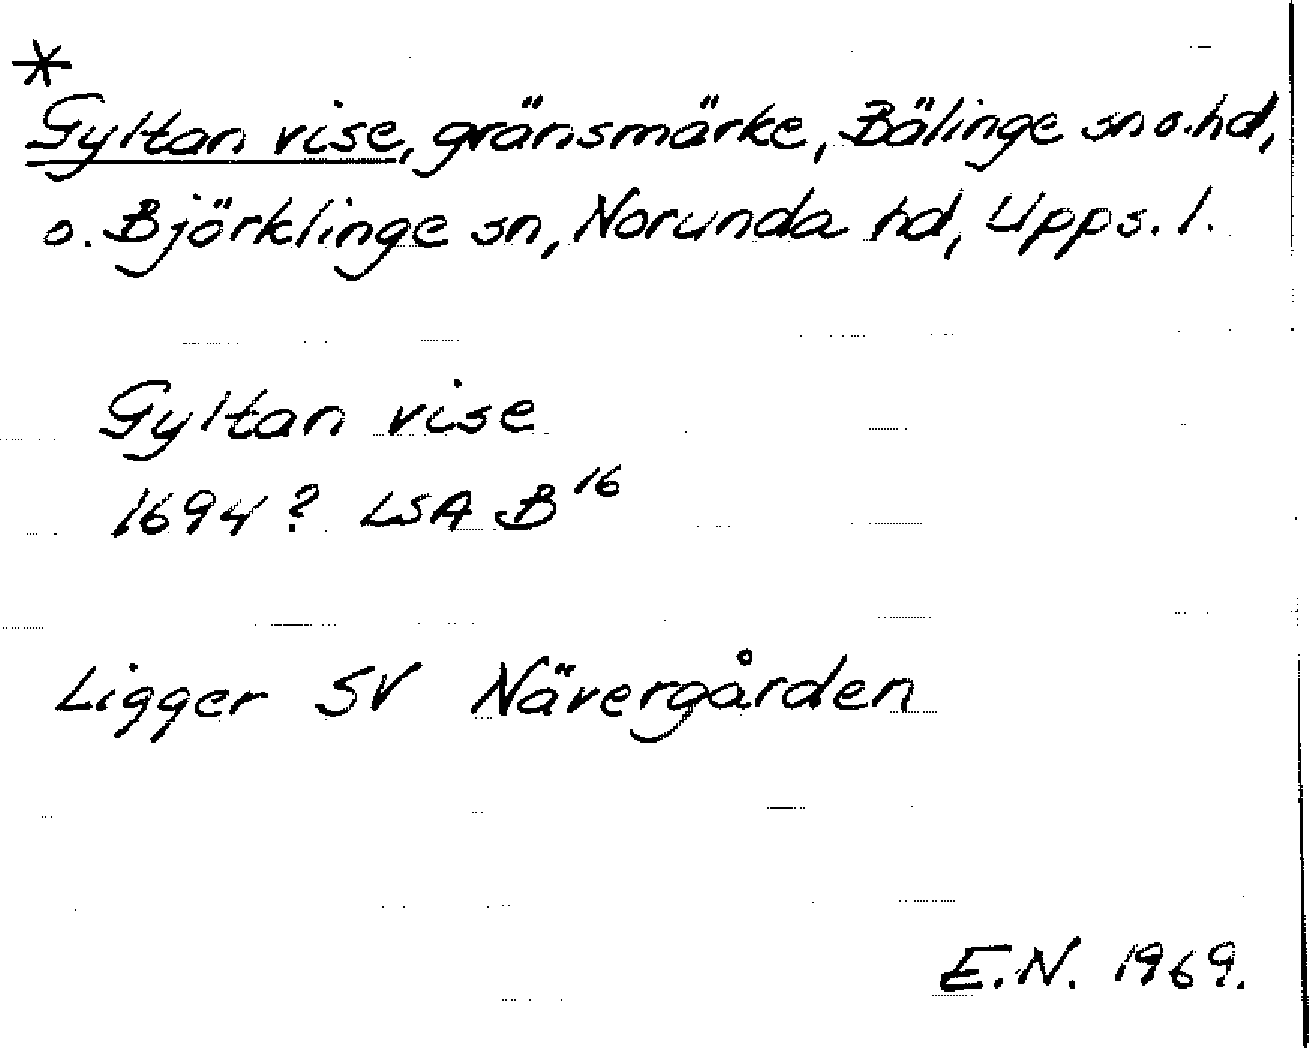 *
Gyltan vise, gränsmärke, Bälinge sn o. hd,
o. Björklinge sn, Norunda hd, Upps. l.
Gyltan vise
1694? LSA B 16
Ligger SV Nävergården
E.N. 1969.